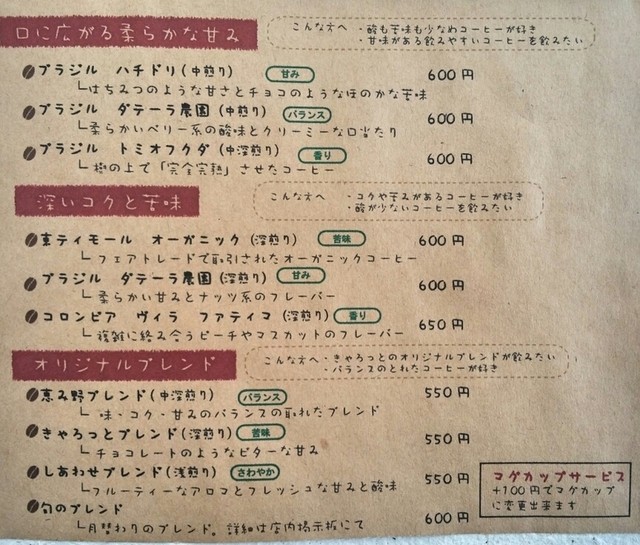 口に広がる柔らかな甘み
こんな方へ ・酸も苦味も少なめコーヒーが好き
・甘味がある飲みやすいコーヒーを飲みたい
ブラジル ハチドリ(中煎り) 甘み 600円
はちみつのような甘さとチョコのようなほのかな苦味
ブラジル ダテーラ農園(中煎り) バランス 600円
柔らかいベリー系の酸味とクリーミーな口当たり
ブラジル トミオフクダ(中深煎り) 香り 600円
樹の上で「完全完熟」させたコーヒー
深いコクと苦味
こんな方へ ・コクや苦みがあるコーヒーが好き
・酸が少ないコーヒーを飲みたい
東ティモール オーガニック(深煎り) 苦味 600円
フェアトレードで取引されたオーガニックコーヒー
ブラジル ダテーラ農園(深煎り) 甘み 600円
柔らかい甘みとナッツ系のフレーバー
コロンビア ヴィラ ファティマ(深煎り) 香り 650円
複雑に絡み合うピーチやマスカットのフレーバー
オリジナルブレンド
こんな方へ ・きゃろっとのオリジナルブレンドが飲みたい
・バランスのとれたコーヒーが好き
恵み野ブレンド(中深煎り) バランス 550円
味・コク・甘みのバランスの取れたブレンド
きゃろっとブレンド(深煎り) 苦味 550円
チョコレートのようなビターな甘み
しあわせブレンド(浅煎り) さわやか 550円
フルーティーなアロマとフレッシュな甘みと酸味
旬のブレンド 600円
月替わりのブレンド。詳細は店内掲示板にて
マグカップサービス
+100円でマグカップ
に変更出来ます